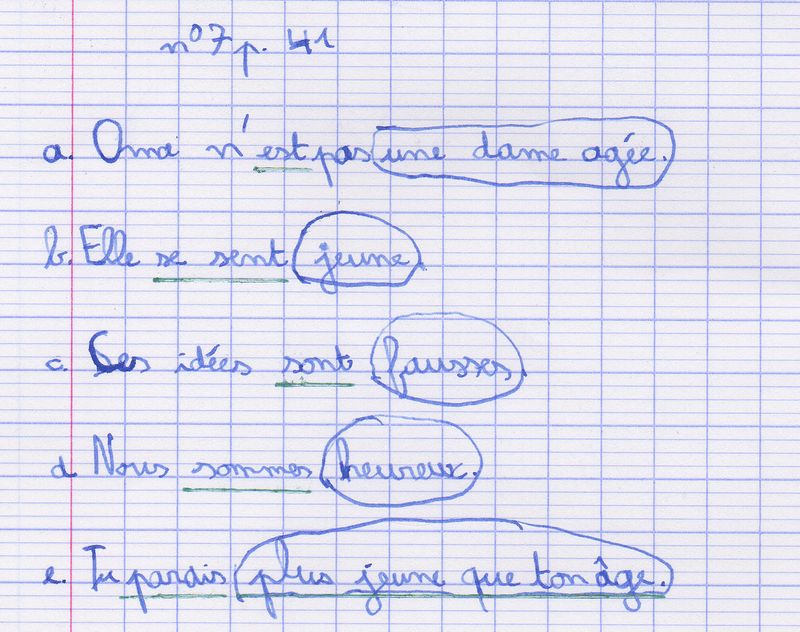 n°7 p. 41
a. Oma n'est pas une dame agée.
b. Elle se sent jeune.
c. Ces idées sont fausses.
d. Nous sommes heureux.
e. Tu parais plus jeune que ton âge.